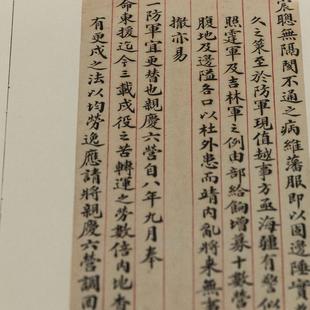 宸聰無隔閡不通之病維藩服即以固邊陲實
久之策至於防軍現值越事方亟海疆有警似
照霆軍及吉林軍之例由部給餉增募十數營
腹地及邊隘各口以杜外患而靖内亂將來無事
撤亦易
一防軍宜更替也親慶六營自八年九月奉
命東援迄今三載戍役之苦轉運之勞數倍内地查
有更戍之法以均勞逸應請將親慶六營調回